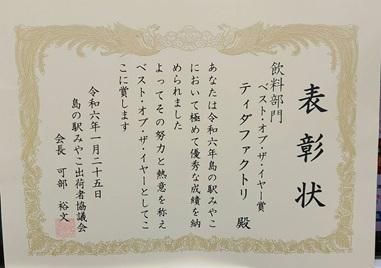 表彰状
飲料部門
ベスト・オブ・ザ・イヤー賞
ティダファクトリ 殿
あなたは令和六年島の駅みやこ
において極めて優秀な成績を納
められました
よってその努力と熱意を称え
ベスト・オブ・ザ・イヤーとしてこ
こに賞します
令和六年一月二十五日
島の駅みやこ出荷者協議会
会長 可部 裕文